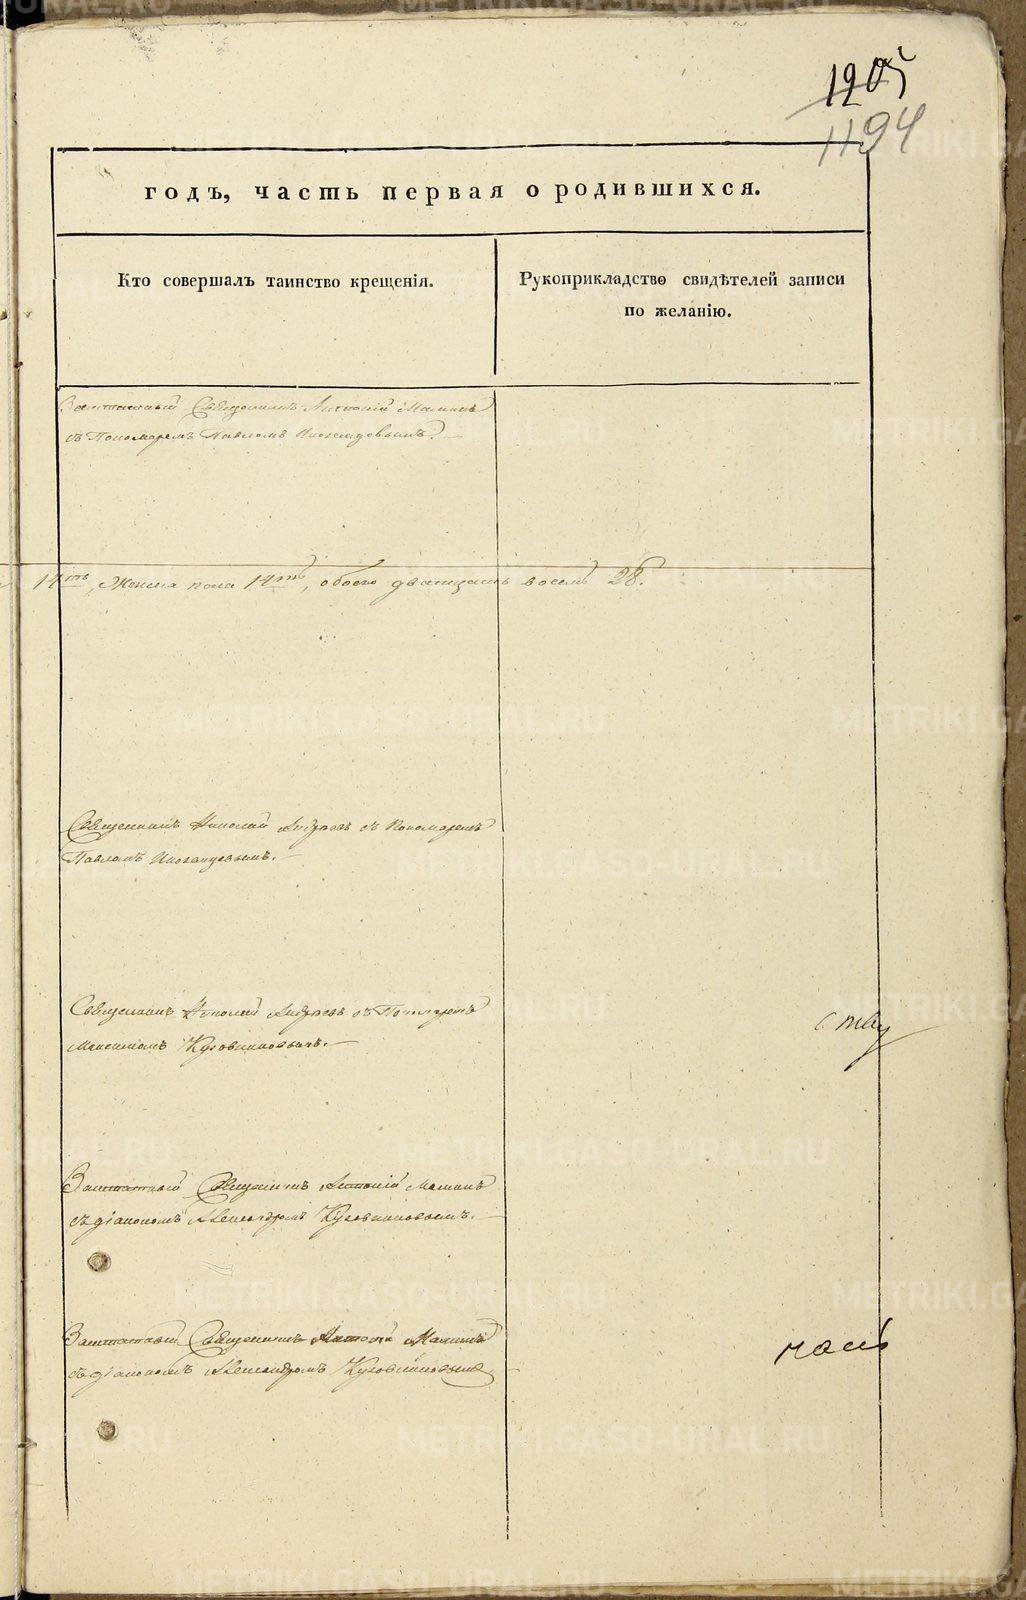 1205
1194
годъ, часть первая о родившихся.
Кто совершалъ таинство крещенія.
Рукоприкладство свидѣтелей записи
по желанію.
Заштатный Священникъ Антоній Малинъ
съ Пономаремъ Павломъ
14ть, Женска пола 14ть, обоего двацать восемь 28.
Священникъ Николай Андреевъ съ Пономаремъ
Павломъ
Священникъ Николай Андреевъ съ Пономаремъ
Максимомъ Кузовниковымъ.
Заштатный Священникъ Антоній Малинъ
съ діакономъ Александромъ Кузовниковымъ.
Заштатный Священникъ Антоній Малинъ
съ діакономъ Александромъ Кузовниковымъ
METRIKI.GASO-URAL.RU